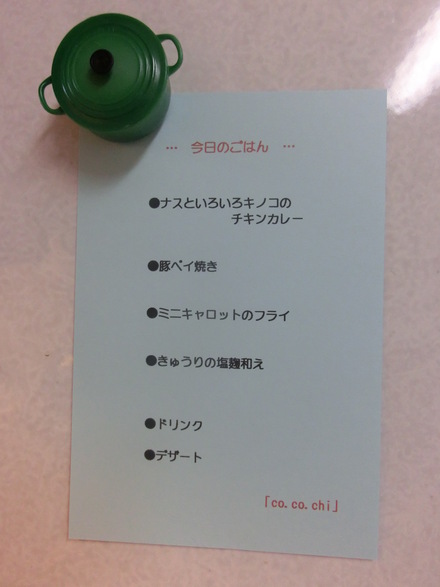 … 今日のごはん …
●ナスといろいろキノコの
チキンカレー
●豚ペイ焼き
●ミニキャロットのフライ
●きゅうりの塩麹和え
●ドリンク
●デザート
「co.co.chi」